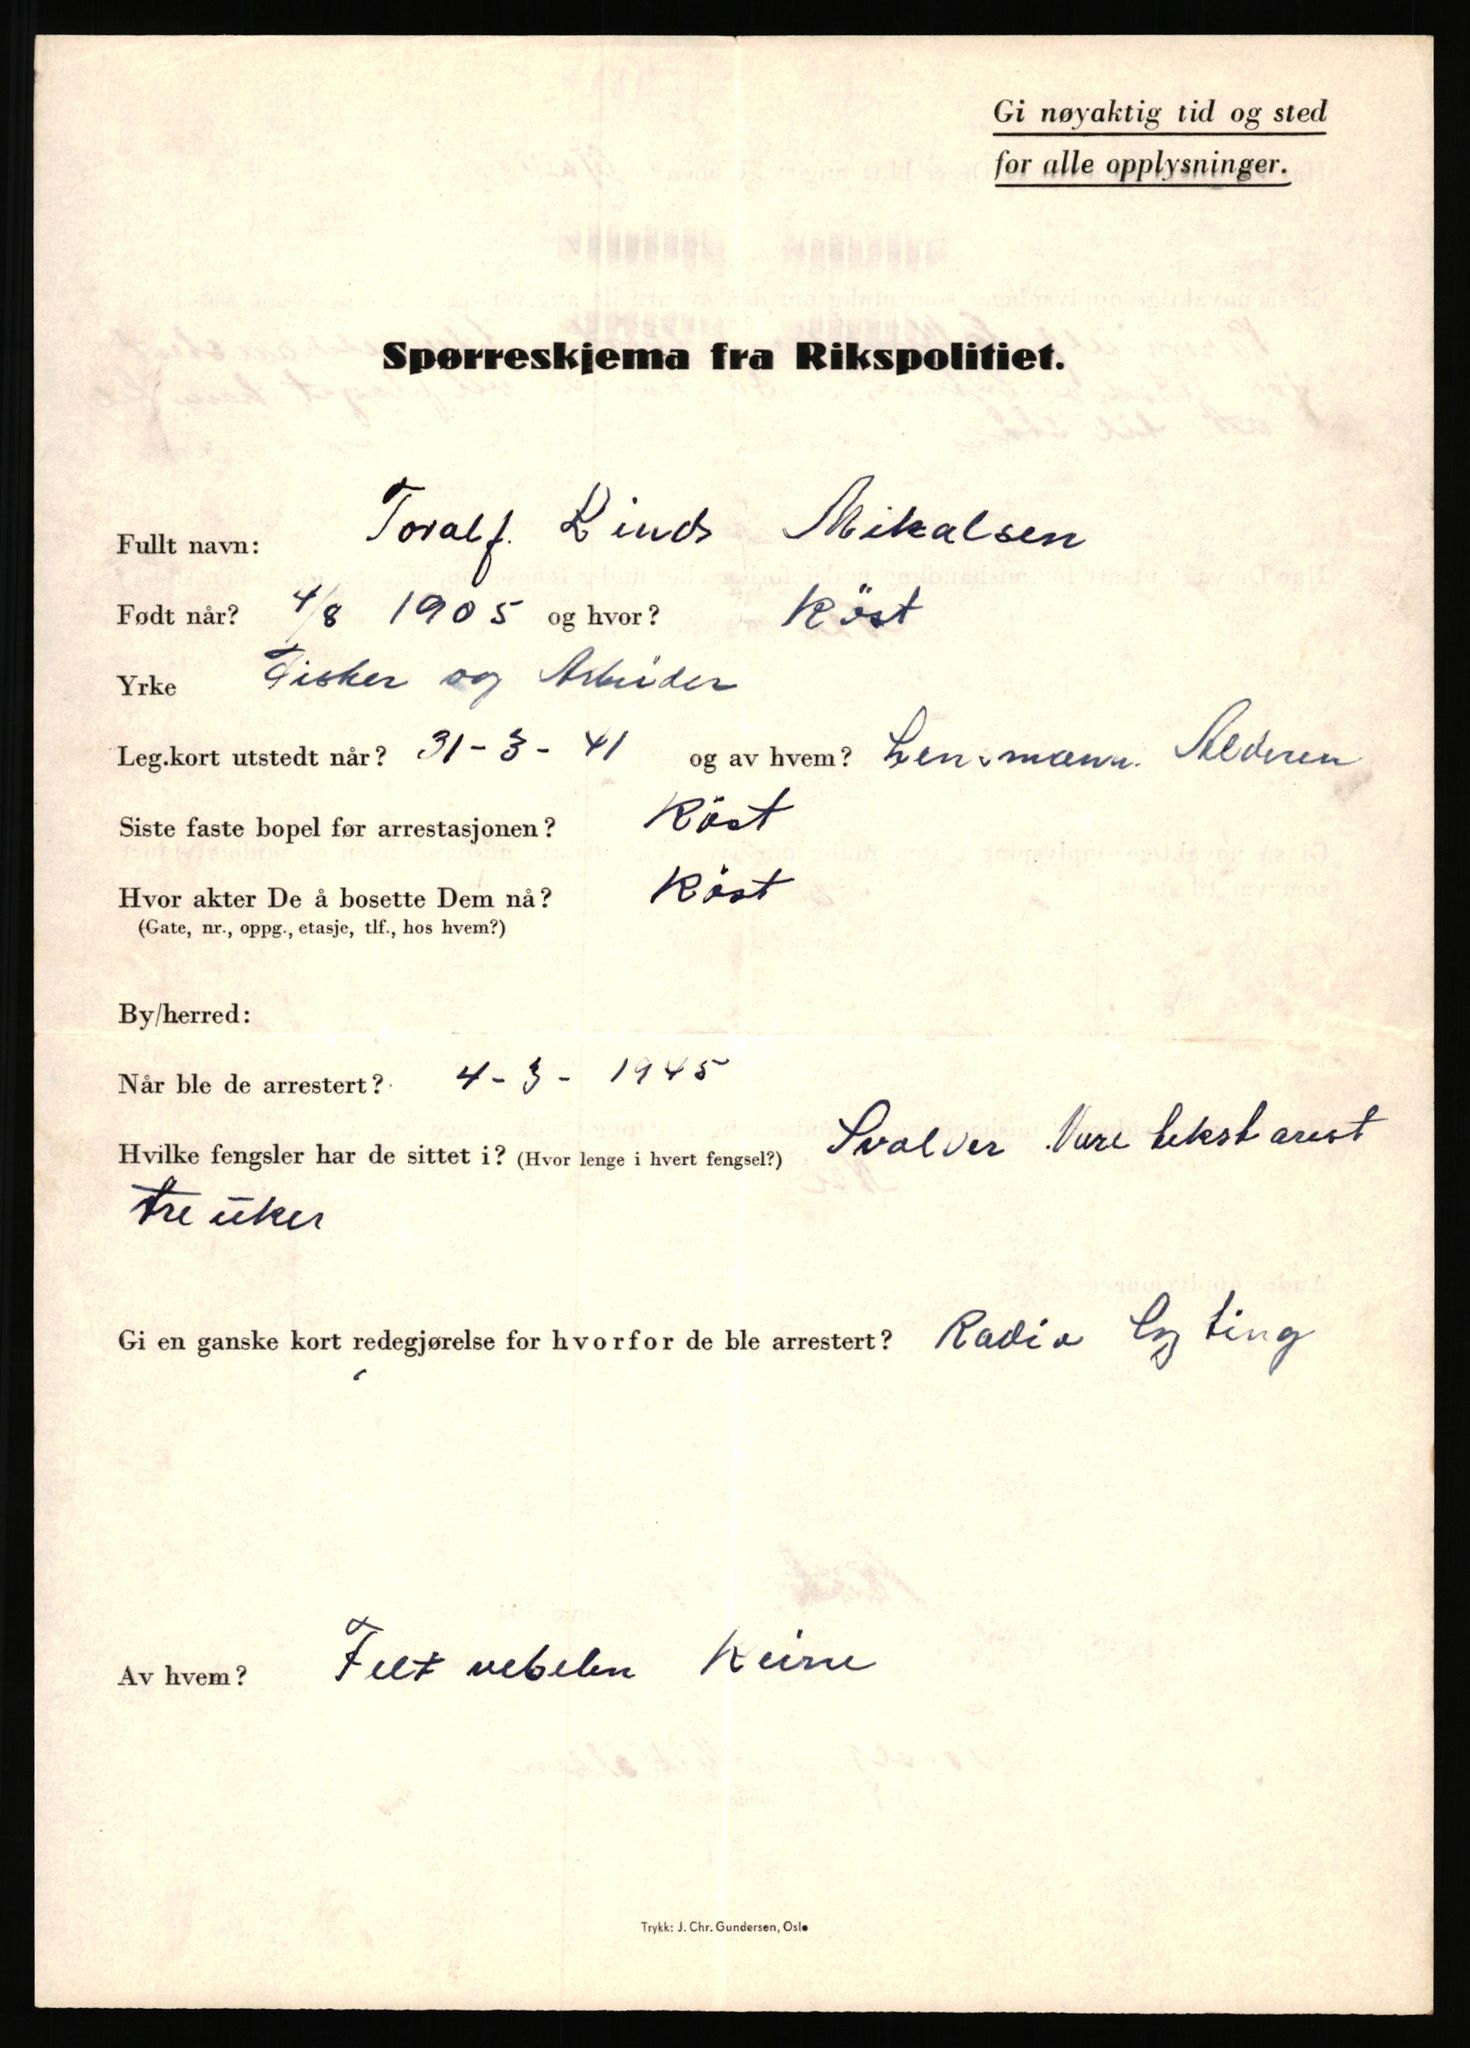 Gi nøyaktig tid og sted
for alle opplysninger.
Spørreskjema fra Rikspolitiet.
Fullt navn: Toralf. Linds Mikalsen
Født når? 4/8 1905 og hvor? Röst
Yrke Fisker og Arbeider
Leg.kort utstedt når? 31-3-41 og av hvem? Lensmann.
Siste faste bopel før arrestasjonen? Röst
Hvor akter De å bosette Dem nå? Röst
(Gate, nr., oppg., etasje, tlf., hos hvem?)
By/herred:
Når ble de arrestert? 4-3-1945
Hvilke fengsler har de sittet i? (Hvor lenge i hvert fengsel?) Svolver Vare tekst arest
tre üker
Gi en ganske kort redegjørelse for hvorfor de ble arrestert? Radio Lyting
Av hvem? Felt vebelen
Trykk: J. Chr. Gundersen, Oslo